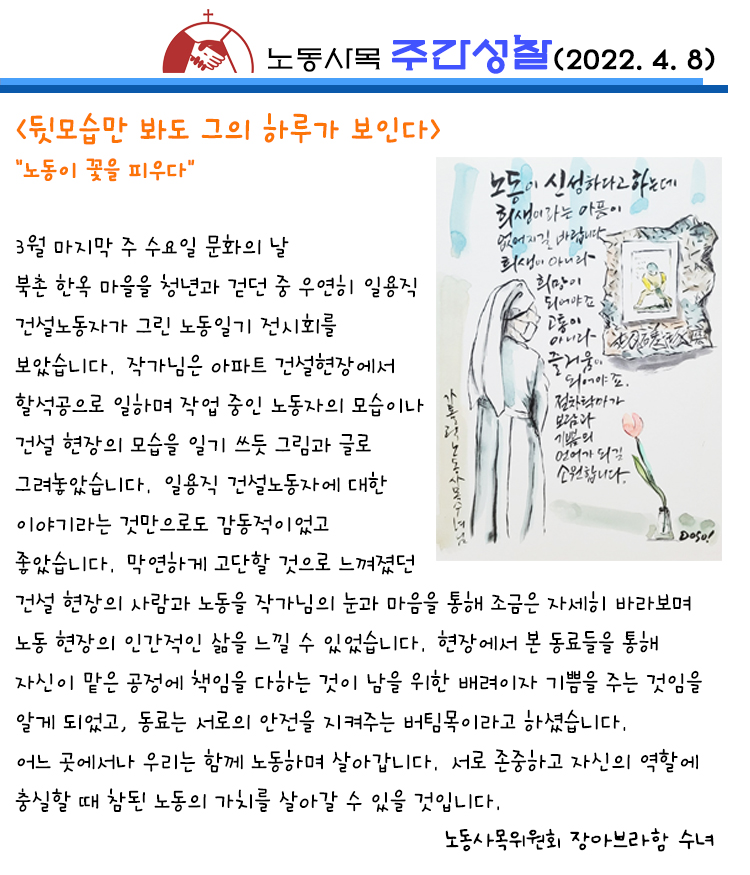 노동사목 주간성찰(2022. 4. 8)
<뒷모습만 봐도 그의 하루가 보인다>
"노동이 꽃을 피우다"
3월 마지막 주 수요일 문화의 날
북촌 한옥 마을을 청년과 걷던 중 우연히 일용직
건설노동자가 그린 노동일기 전시회를
보았습니다. 작가님은 아파트 건설현장에서
할석공으로 일하며 작업 중인 노동자의 모습이나
건설 현장의 모습을 일기 쓰듯 그림과 글로
그려놓았습니다. 일용직 건설노동자에 대한
이야기라는 것만으로도 감동적이었고
좋았습니다. 막연하게 고단할 것으로 느껴졌던
건설 현장의 사람과 노동을 작가님의 눈과 마음을 통해 조금은 자세히 바라보며
노동 현장의 인간적인 삶을 느낄 수 있었습니다. 현장에서 본 동료들을 통해
자신이 맡은 공정에 책임을 다하는 것이 남을 위한 배려이자 기쁨을 주는 것임을
알게 되었고, 동료는 서로의 안전을 지켜주는 버팀목이라고 하셨습니다.
어느 곳에서나 우리는 함께 노동하며 살아갑니다. 서로 존중하고 자신의 역할에
충실할 때 참된 노동의 가치를 살아갈 수 있을 것입니다.
노동사목위원회 장아브라함 수녀
노동이 신성하다고 하는데
희생이라는 아픔이
없어지길 바랍니다
희생이 아니라
희망이
되어야죠
고통이
아니라
즐거움이
되어야죠.
절차탁마가
보람과
기쁨의
언어가 되길
소원합니다.
가톨릭노동사목수녀님
Doso!